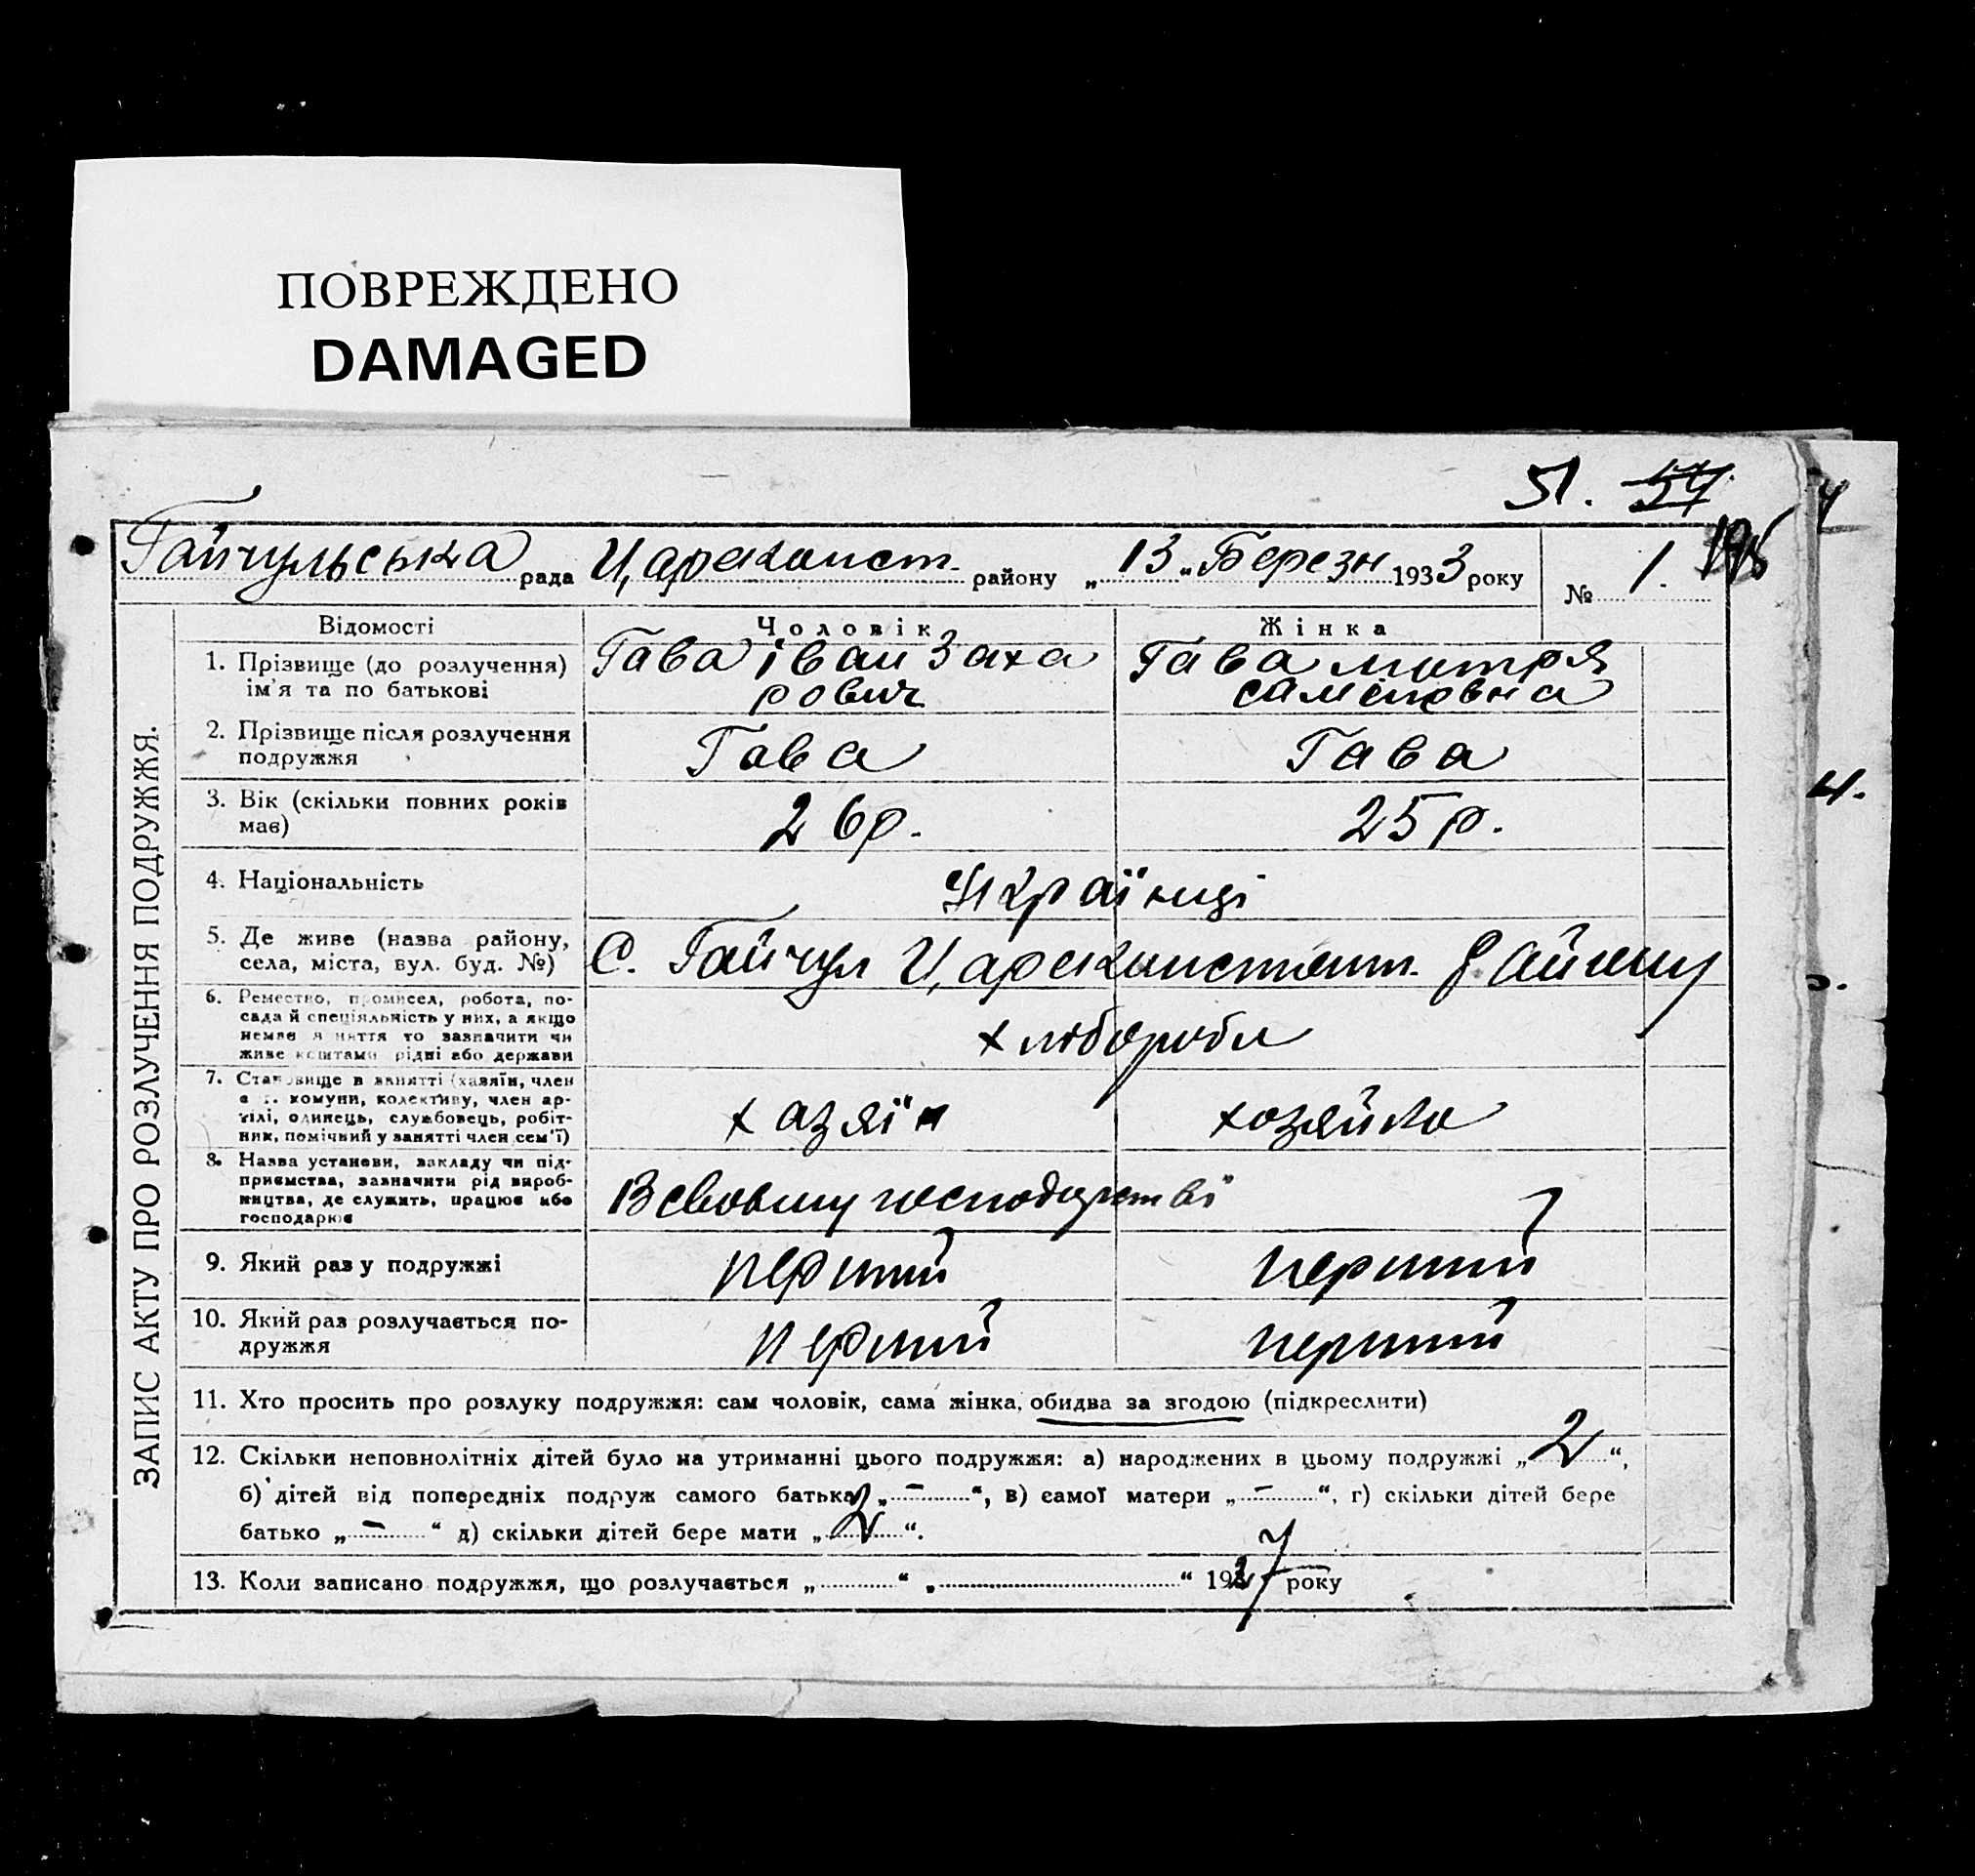 ПОВРЕЖДЕНО
DAMAGED
51. 57
Гайчульська рада Цареконст. району „13" Березн 1933 року № 1. 198
ЗАПИС АКТУ ПРО РОЗЛУЧЕННЯ ПОДРУЖЖЯ.
Відомості Чоловік Жінка
1. Прізвище (до розлучення) Гава іван Заха Гава мотря
ім'я та по батькові рович
2. Прізвище після розлучення
подружжя Гава Гава
3. Вік (скільки повних років
має) 26р. 25р.
4. Національність Українці
5. Де живе (назва району,
села, міста, вул. буд. №) С. Гайчул Царекостянт. району
6. Ремество, промисел, робота, по-
сада й спеціяльність у них, а якщо
немає заняття то зазначити чи
живе коштами рідні або держави
хлібороби
7. Становище в занятті (хазяїн, член
с.-г. комуни, колективу, член ар-
тілі, одинець, службовець, робіт-
ник, помічний у занятті член сем'ї)
хазяїн хозяйка
8. Назва установи, закладу чи під-
приємства, зазначити рід вироб-
ництва, де служить, працює або
господарює
В своєму господарстві
9. Який раз у подружжі перший перший
10. Який раз розлучається по-
дружжя перший перший
11. Хто просить про розлуку подружжя: сам чоловік, сама жінка, обидва за згодою (підкреслити)
12. Скільки неповнолітніх дітей було на утриманні цього подружжя: а) народжених в цьому подружжі „ 2 “,
б) дітей від попередніх подруж самого батька „ – “, в) самої матери „ – “, г) скільки дітей бере
батько „ – “ д) скільки дітей бере мати „ 2 “.
13. Коли записано подружжя, що розлучається „ “ „ “ 1927 року